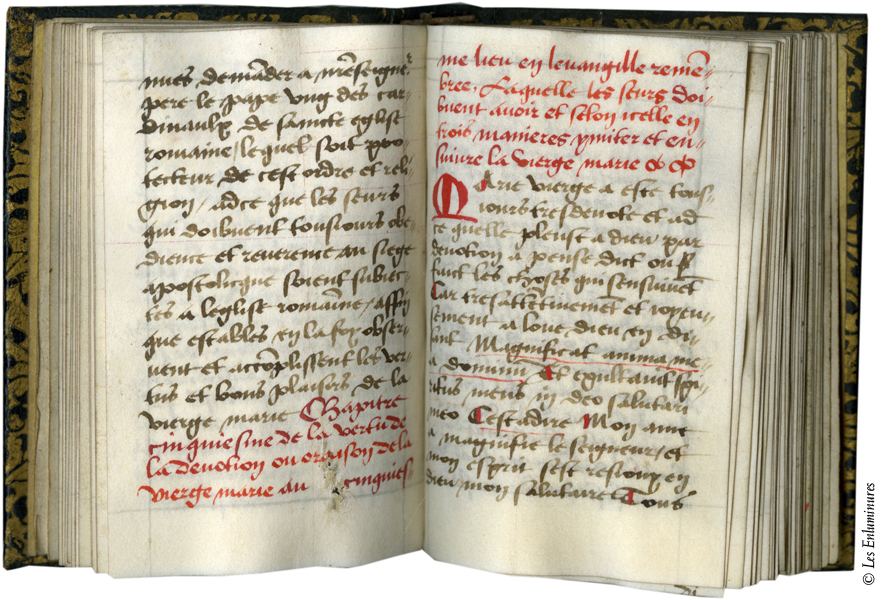 nues demãder a nr̃eseigneʳ
pere le pape vng des car-
dinaulx de saincte eglise
romaine / lequel soit pro-
tecteur de cest ordre et reli-
gion / adce que les seurs
qui doibuent tousiours obe-
dience et reuerence au siege
apostolicque soient subiec-
tes a leglise romaine / affin
que estables en la foy obser-
uent et accõplissent les ver-
tus et bons plaisirs de la
vierge marie Chapitre
cinquiesme de la vertu de
la deuotion ou oraison de la
vierge marie au cinquies
me lieu en leuangille remẽ-
bree. Laquelle les seurs doi-
buent auoir et selon icelle en
trois manieres ymiter et en-
suiure la vierge marie
Marie vierge a este tous-
iours tresdeuote et ad
ce quelle pleust a dieu par
deuotion a pense dict ou
faict les choses qui sensuiuẽt
Car tresattẽtiuemẽt et ioyeu-
sement a loue dieu en di-
sant Magnificat anima me-
a dominũ Et exultauit spi-
ritus meus in deo salutari
meo Cest adire Mon ame
a magnifie le seigneur / et
mon esprit sest resiouy en
dieu mon salutaire Tous
© Les Enluminures